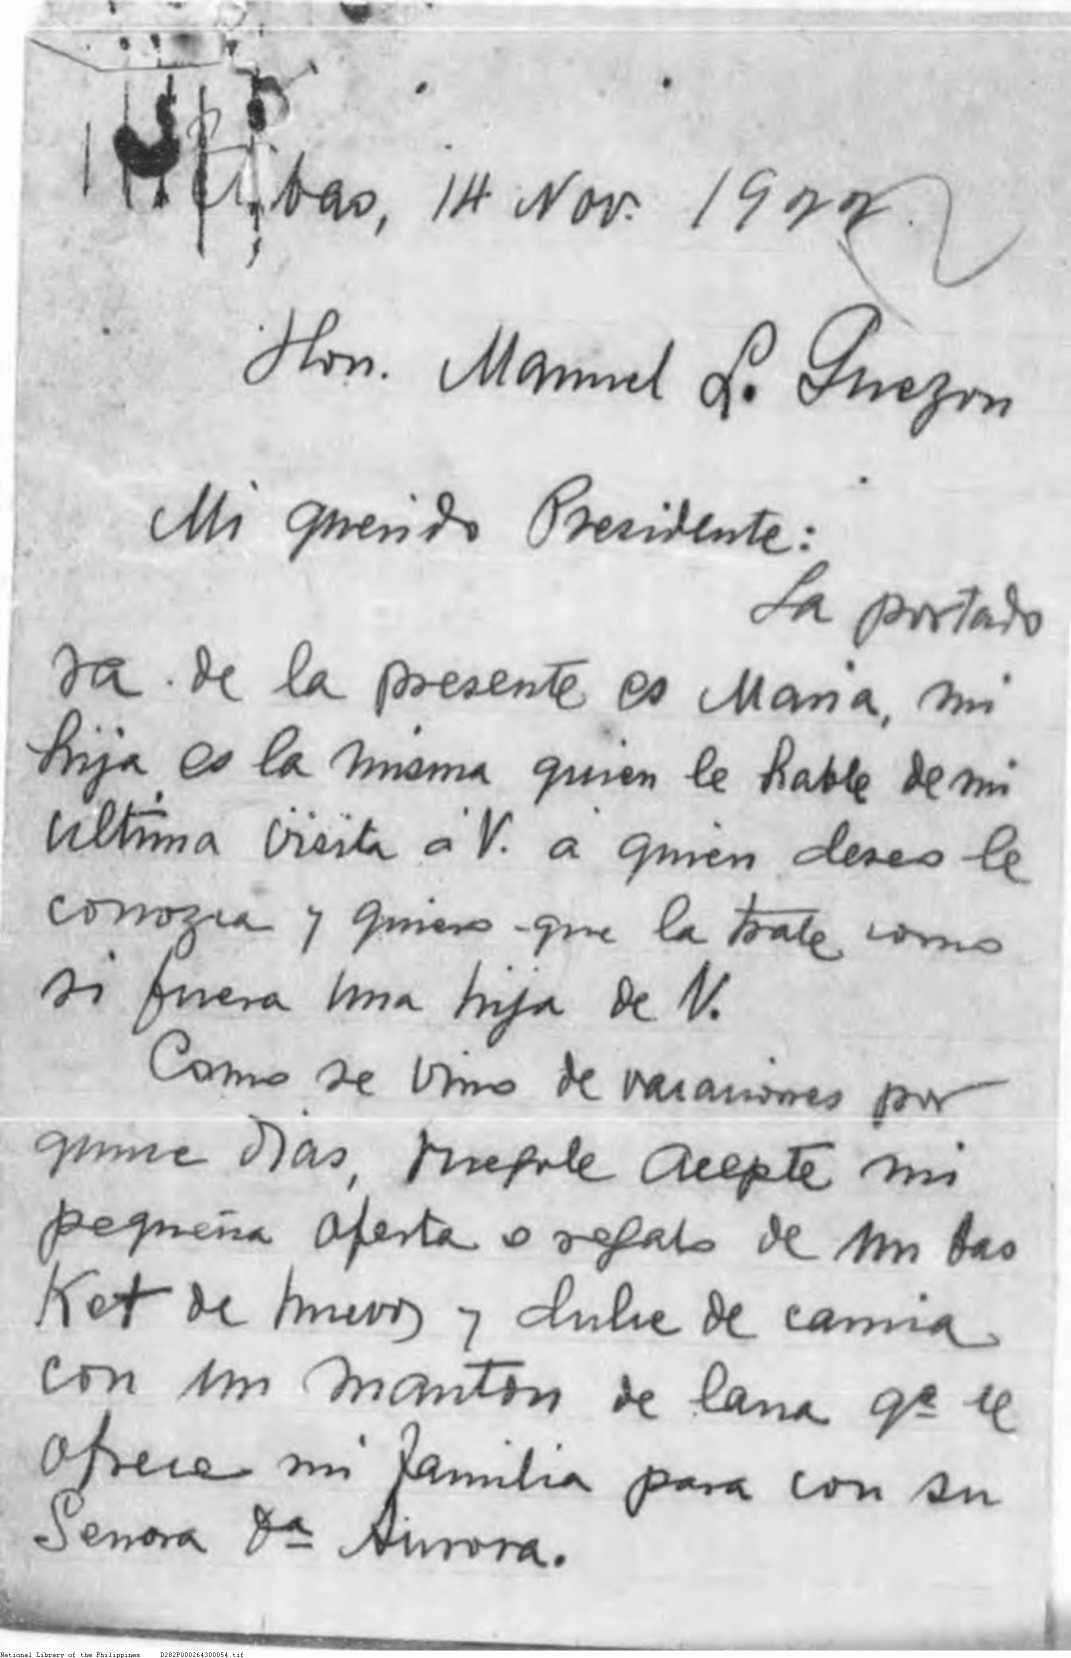 Tibas, 14 Nov. 1922.
Hon. Manuel L. Quezon
Mi querido Presidente:
La portado
ra de la presente es Maria, mi
hija es la misma quien le hable de mi
ultima visita á V. a quien deseo le
conozca y quiero que la trate como
si fuera una hija de V.
Como se vino de vacaciones por
quince dias, ruegole acepte mi
pequeña oferta o regalo de un bas
Ket de huevos y dulce de camia
con un manton de lana qe le
ofrece mi familia para con su
Senora Da Aurora.
National Library of the Philippines D282P000264300054.tif